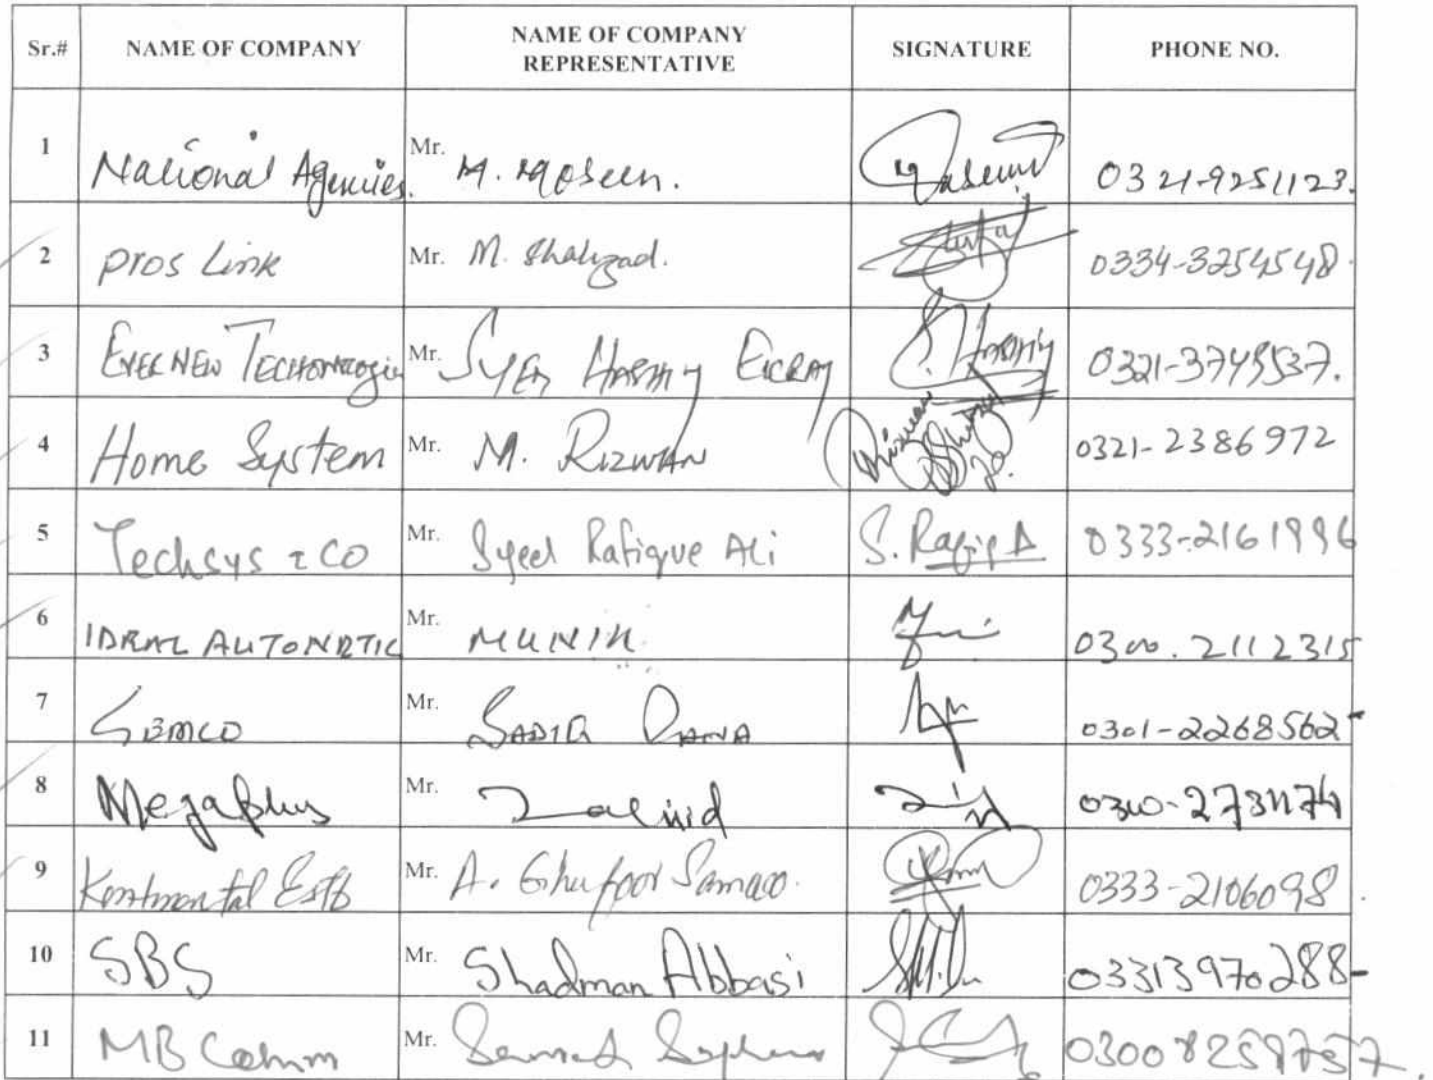 Sr.# NAME OF COMPANY NAME OF COMPANY REPRESENTATIVE SIGNATURE PHONE NO.
1 National Agencies. Mr. M. Moseen. 0321-9251123.
2 Pros Link Mr. M. Shahzad. 0334-3254548.
3 EVER NEW Mr. SYED HASHMY 0321-3745537.
4 Home System Mr. M. RIZWAN Rizwan 0321-2386972
5 Techsys & CO Mr. Syed Rafique Ali S. Rafiq A 0333-2161996
6 IDEAL AUTOMATIC Mr. MUNIR. 0300.2112315
7 SEMCO Mr. SADIQ 0301-2268562
8 Megaplus Mr.
9 Kontinental Estb Mr. A. Ghafoor 0333-2106098
10 SBS Mr. Shadman Abbasi 03313970288
11 MB Comm Mr.